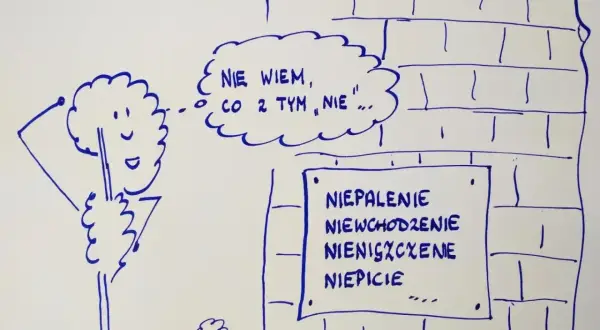 NIE WIEM,
CO Z TYM „NIE"...
NIEPALENIE
NIEWCHODZENIE
NIENISZCZENIE
NIEPICIE
....